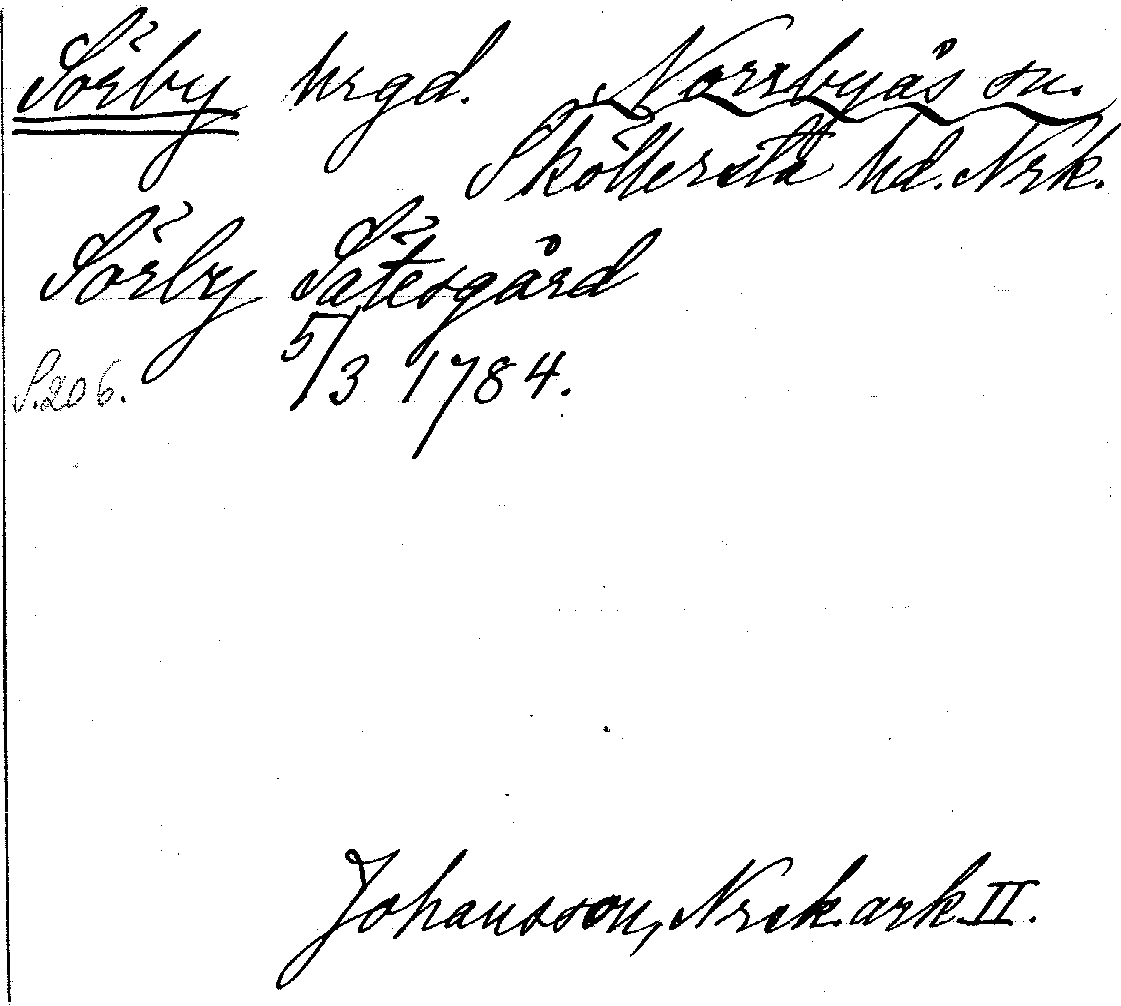 Sörby hrgd. Norrbyås sn.
Sköllersta hd. Nrk.
Sörby Sätesgård
S. 206. 5/3 1784.
Johansson, Nrk. ark. II.